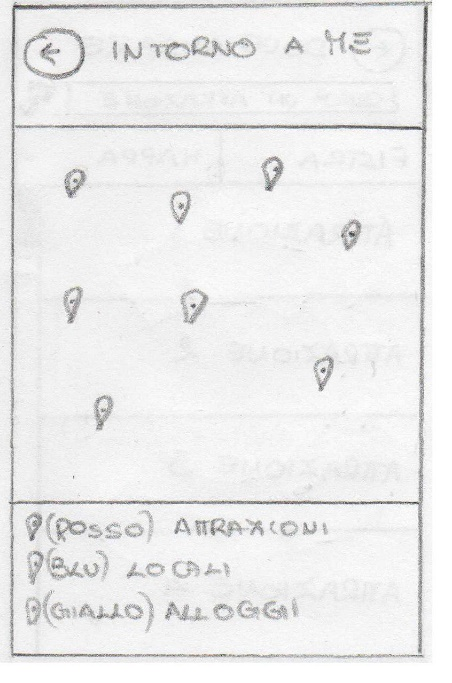 INTORNO A ME
(ROSSO) ATTRAZIONI
(BLU) LOCALI
(GIALLO) ALLOGGI